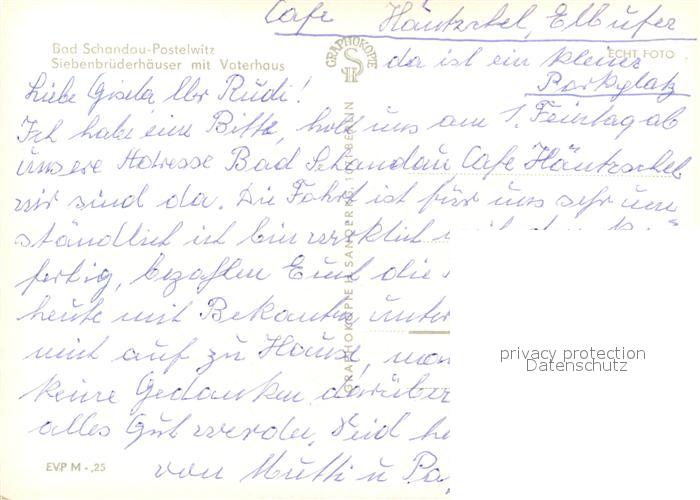 Cafe Häntzschel, Elbufer
Bad Schandau-Postelwitz
Siebenbrüderhäuser mit Vaterhaus
GRAPHOKOPIE
ECHT FOTO
da ist ein kleiner
Parkplatz
Liebe Gisela Rudi!
Ich habe eine Bitte, holt uns am 1. Feiertag ab
unsere Adresse Bad Schandau Cafe Häntzschel
wir sind da. Die Fahrt ist für uns sehr um
ständlich ich bin wirklich
fertig, bezahlen Euch die
heute mit Bekannten unter
mich auf zu Hause,
keine Gedanken darüber
alles Gut werden, Seid
von Mutti u Pa
EVP M -,25
GRAPHOKOPIE H. SANDER BERLIN
privacy protection
Datenschutz